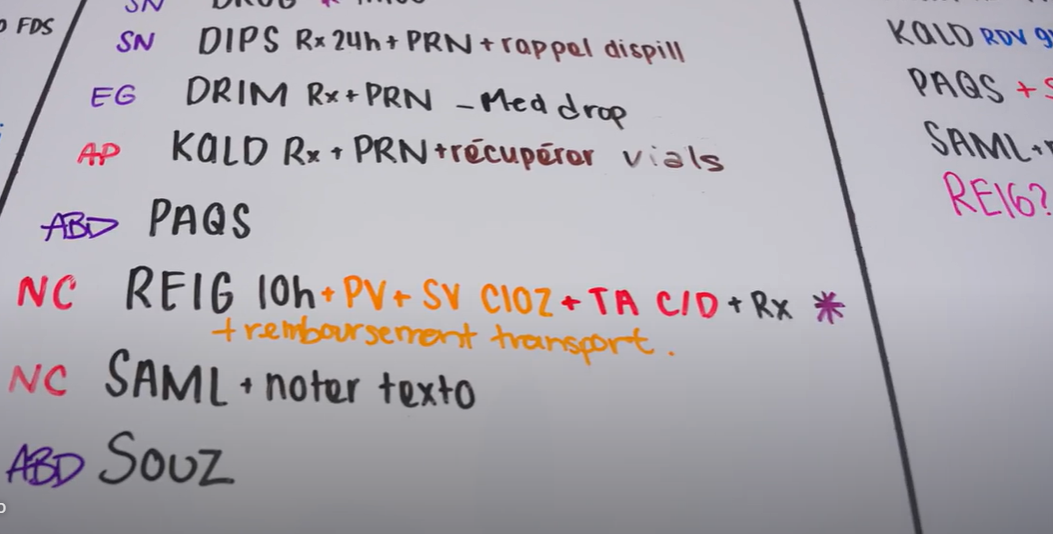 FDS
SN DIPS Rx 24h + PRN + rappel dispill
EG DRIM Rx + PRN - Med drop
AP KALD Rx + PRN + récupérer vials
ABD PAQS
NC REIG 10h + PV + SV CLOZ + TA C/D + Rx *
+ remboursement transport.
NC SAML + noter texto
ABD SOUZ
KALD RDV
PAQS +
SAML +
REIG?